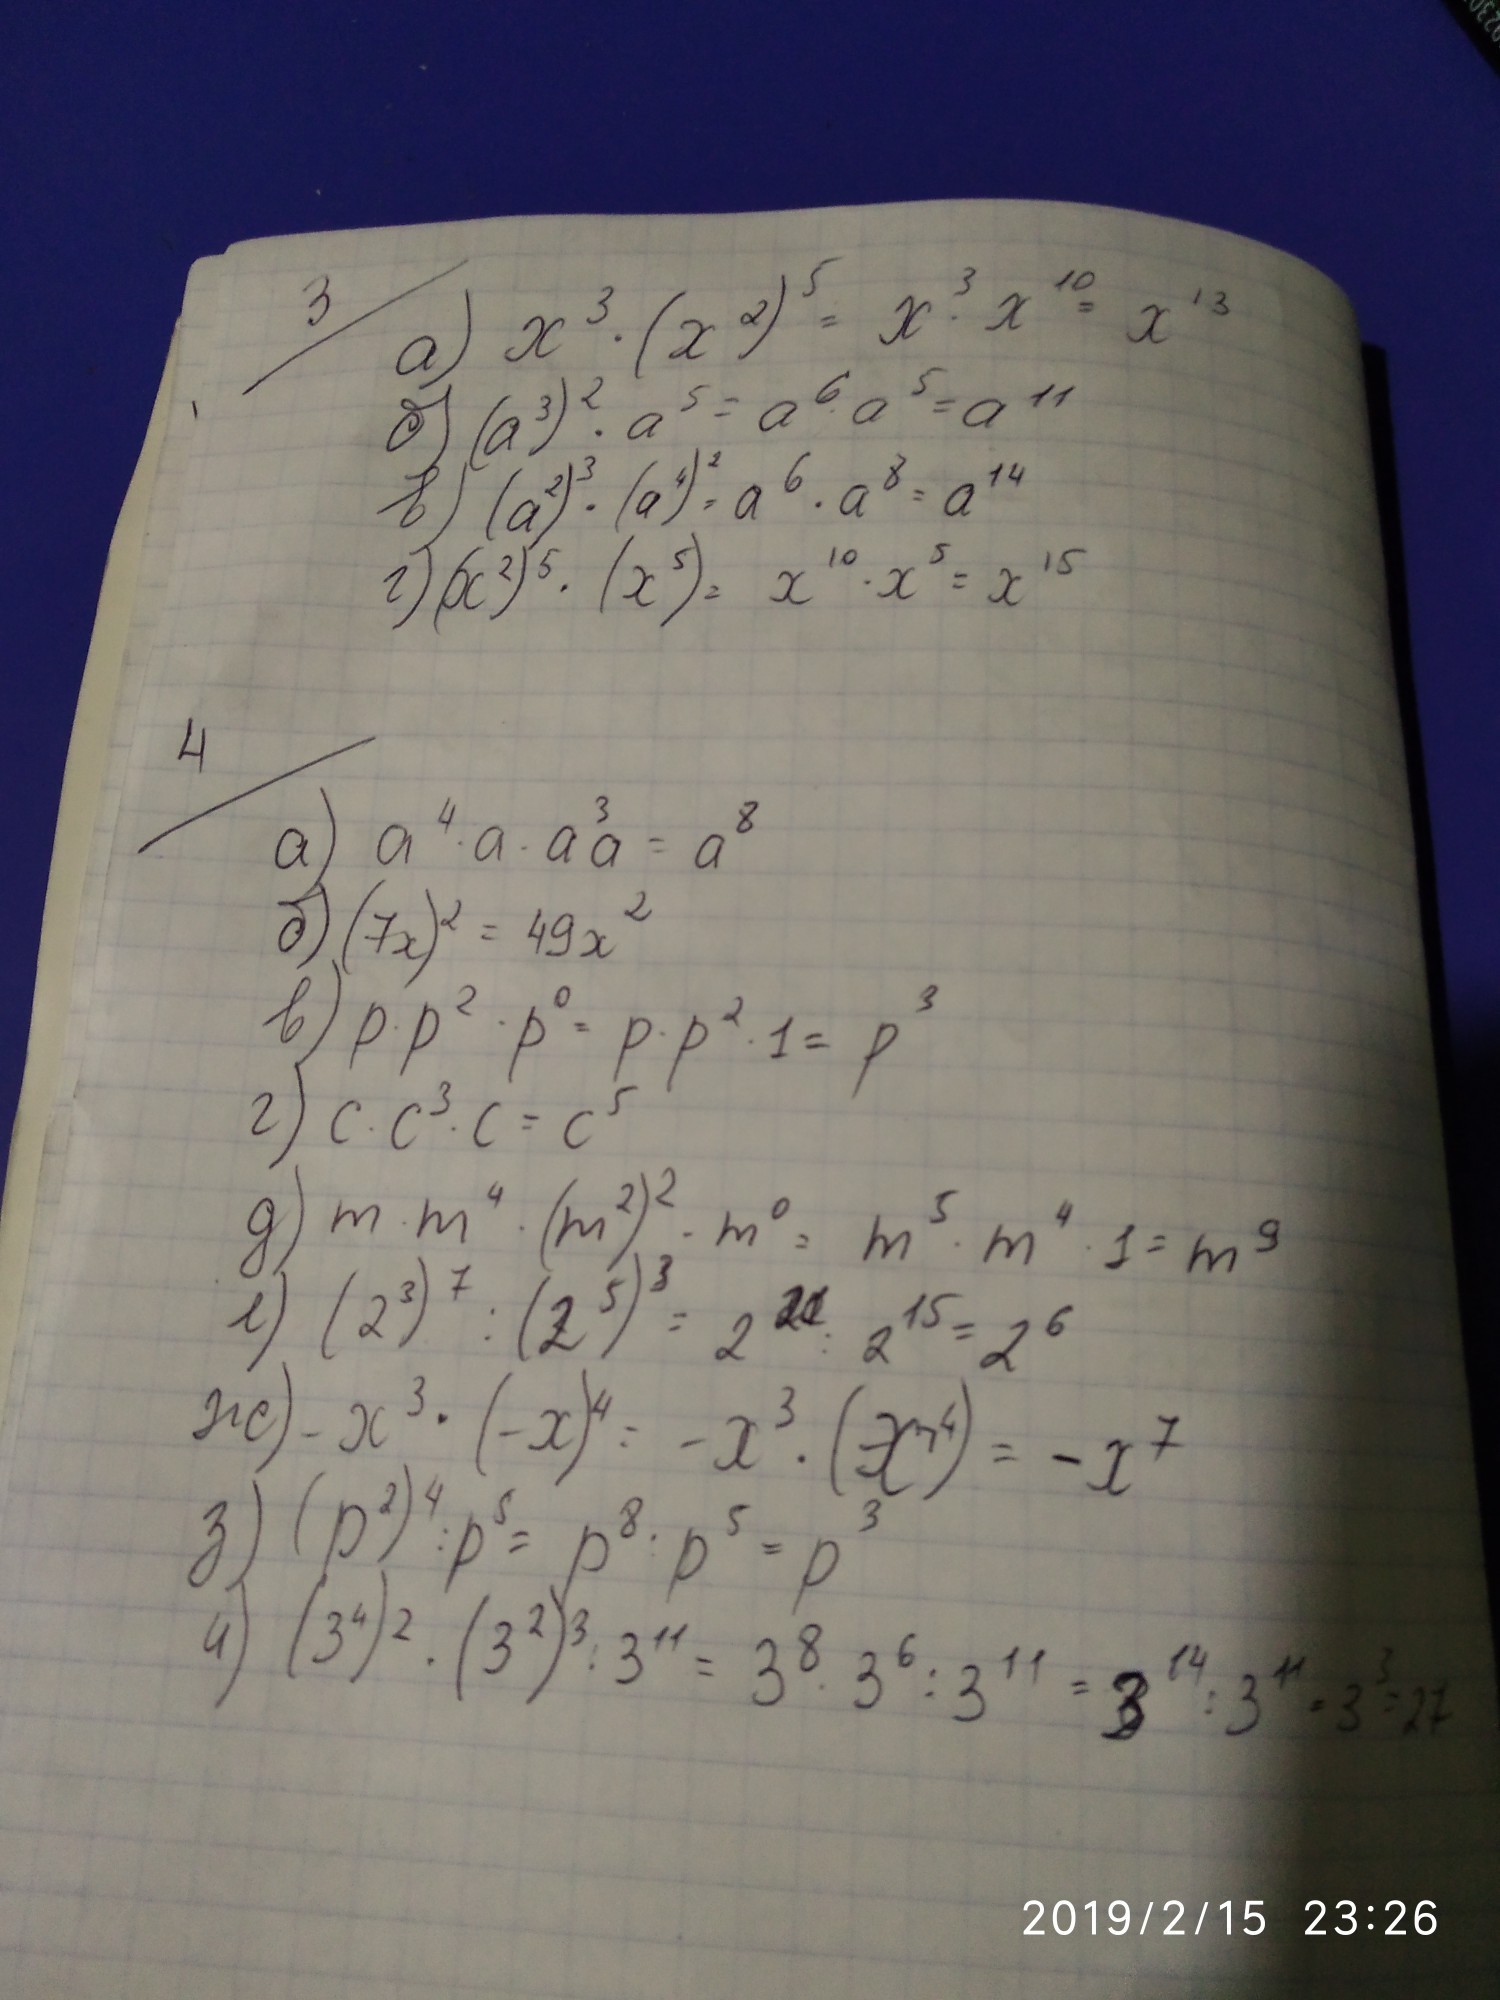 3
а) x³ · (x²)⁵ = x³ · x¹⁰ = x¹³
б) (a³)² · a⁵ = a⁶ · a⁵ = a¹¹
в) (a²)³ · (a⁴)² = a⁶ · a⁸ = a¹⁴
г) (x²)⁵ · (x⁵) = x¹⁰ · x⁵ = x¹⁵
4
а) a⁴ · a · a³a = a⁸
б) (7x)² = 49x²
в) p · p² · p⁰ = p · p² · 1 = p³
г) c · c³ · c = c⁵
д) m · m⁴ · (m²)² · m⁰ = m⁵ · m⁴ · 1 = m⁹
е) (2³)⁷ : (2⁵)³ = 2²¹ : 2¹⁵ = 2⁶
ж) -x³ · (-x)⁴ = -x³ · (x⁴) = -x⁷
з) (p²)⁴ : p⁵ = p⁸ : p⁵ = p³
и) (3⁴)² · (3²)³ : 3¹¹ = 3⁸ · 3⁶ : 3¹¹ = 3¹⁴ : 3¹¹ = 3³ = 27
2019/2/15 23:26